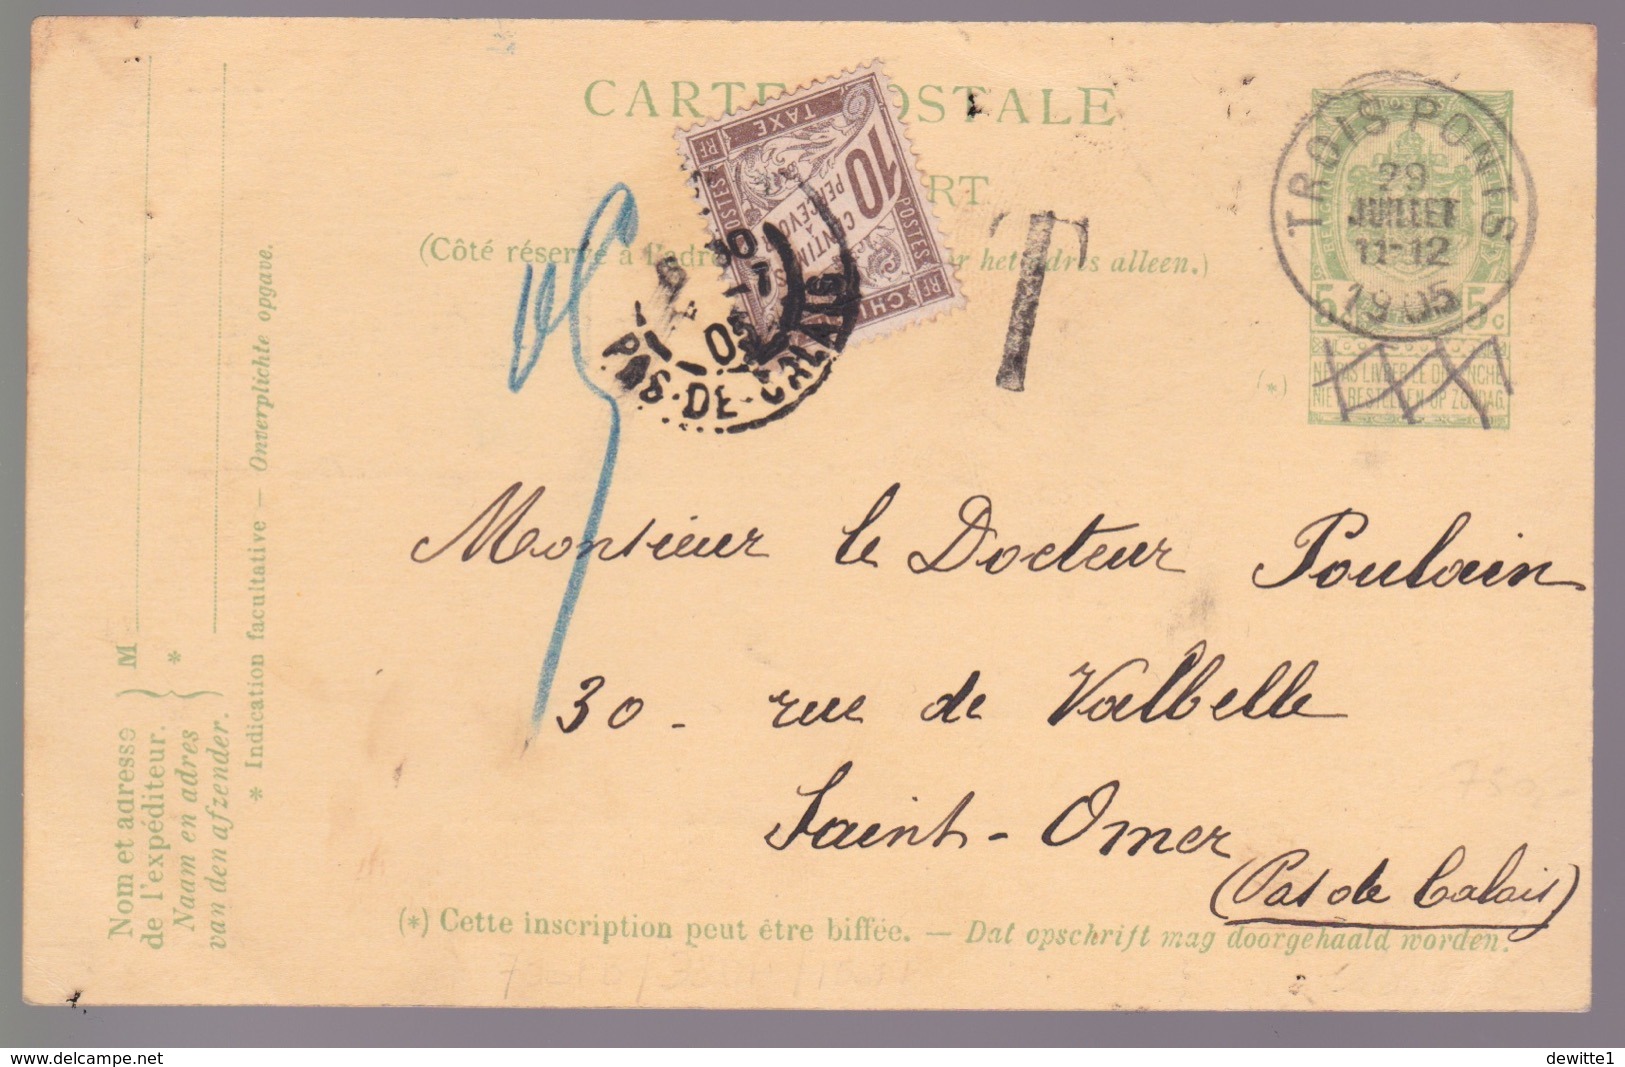 CARTE POSTALE
(Côté réservé à l'adres
het adres alleen.)
RF TAXE
10
CENTIMES
À
PERCEVOIR
POSTES
POSTES
RF
30
05
PAS-DE-CALAIS
T
TROIS-PONTS
29
JUILLET
11-12
1905
5 5c
(*)
NE PAS LIVRER LE DIMANCHE
NIET BESTELLEN OP ZONDAG.
Monsieur le Docteur Poulain
30 - rue de Valbelle
Saint-Omer
(Pas de Calais)
(*) Cette inscription peut être biffée. — Dat opschrift mag doorgehaald worden.
Nom et adresse
de l'expéditeur.
Naam en adres
van den afzender.
M
*
* Indication facultative — Onverplichte opgave.
www.delcampe.net
dewitte1